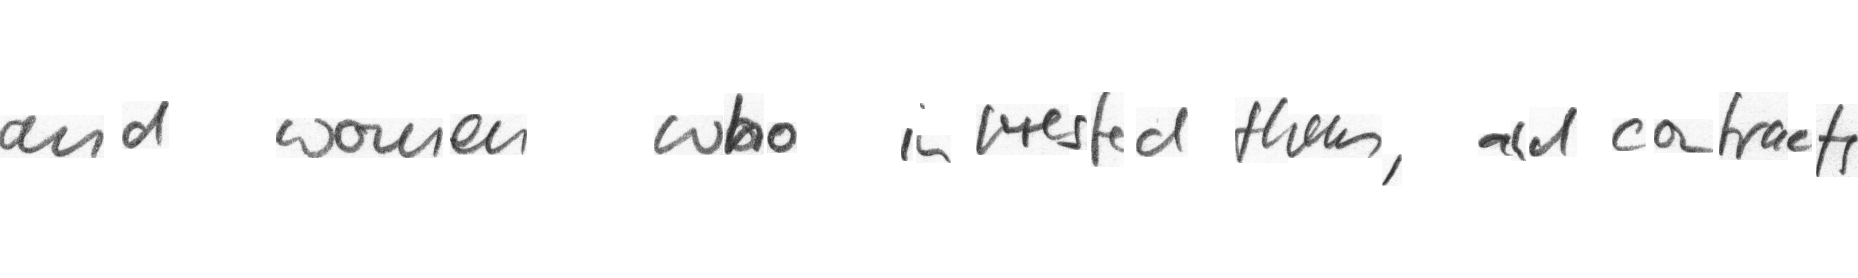 and women who interested them, and contracts